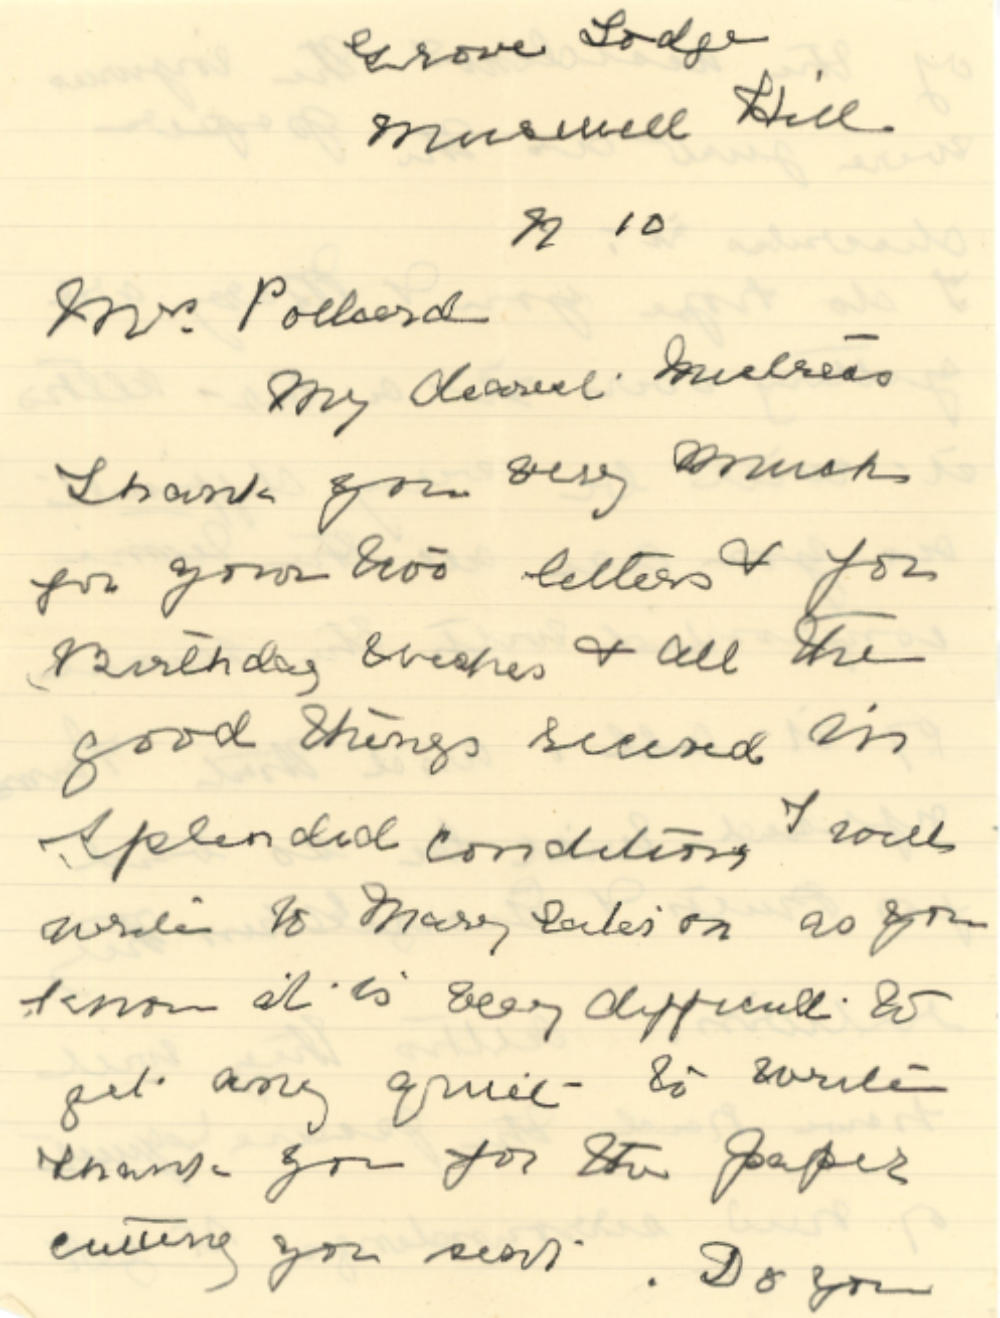 Grove Lodge
Muswell Hill
N 10
Mrs. Pollard
My dearest
Thank you very much
for your two letters & for
Birthday wishes & all the
good things received in
splendid condition I will
write to Mary later on as you
know it is very difficult to
get any quiet to write
thank you for the paper
cutting you sent. Do you